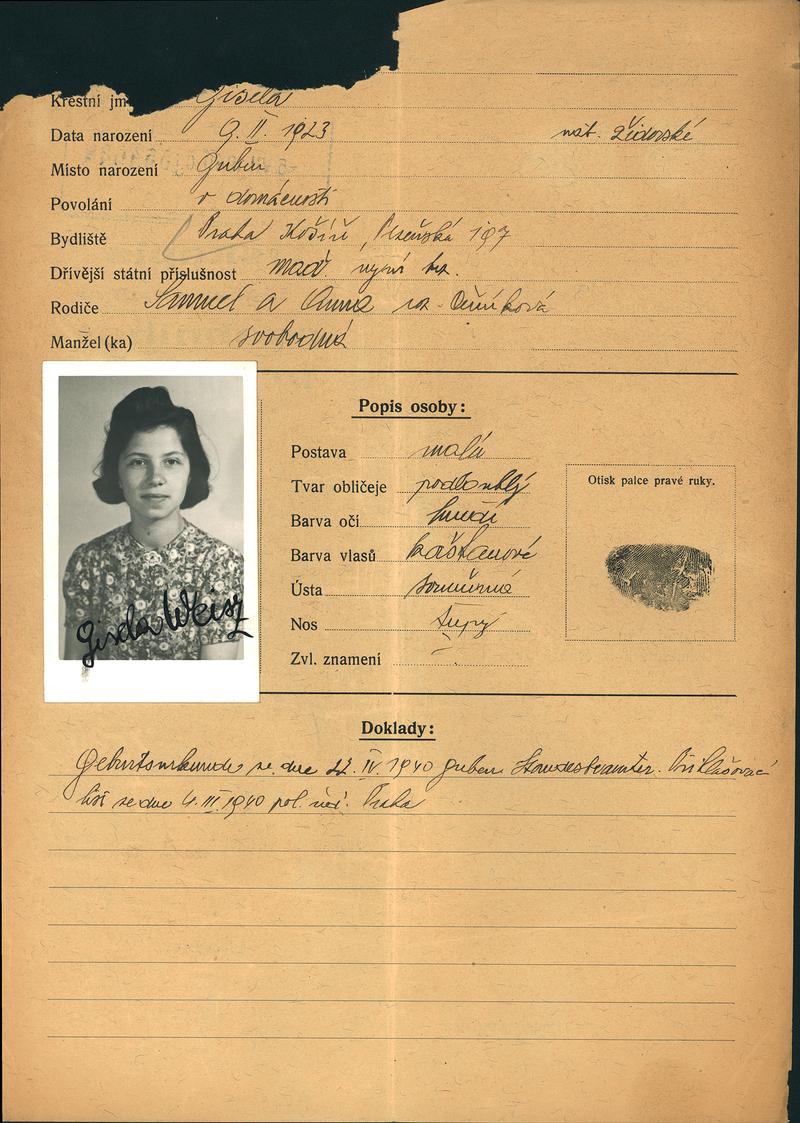 Křestní jm Gisela
Data narození 9. II. 1923 nát. židovské
Místo narození Guben
Povolání v domácnosti
Bydliště Praha Košíře, Plzeňská 197
Dřívější státní příslušnost maď. nyní bez.
Rodiče Samuel a Anna
Manžel (ka) svobodná
Popis osoby:
Postava malá
Tvar obličeje podlouhlý
Barva očí hnědé
Barva vlasů kaštanové
Ústa souměrná
Nos tupý
Zvl. znamení -.
Otisk palce pravé ruky.
Gisela Weisz
Doklady:
Geburtsurkunde ze dne IV. 1940 Guben Standesbeamter. Přihlašovací
list ze dne 4. III. 1940 pol. řed. Praha